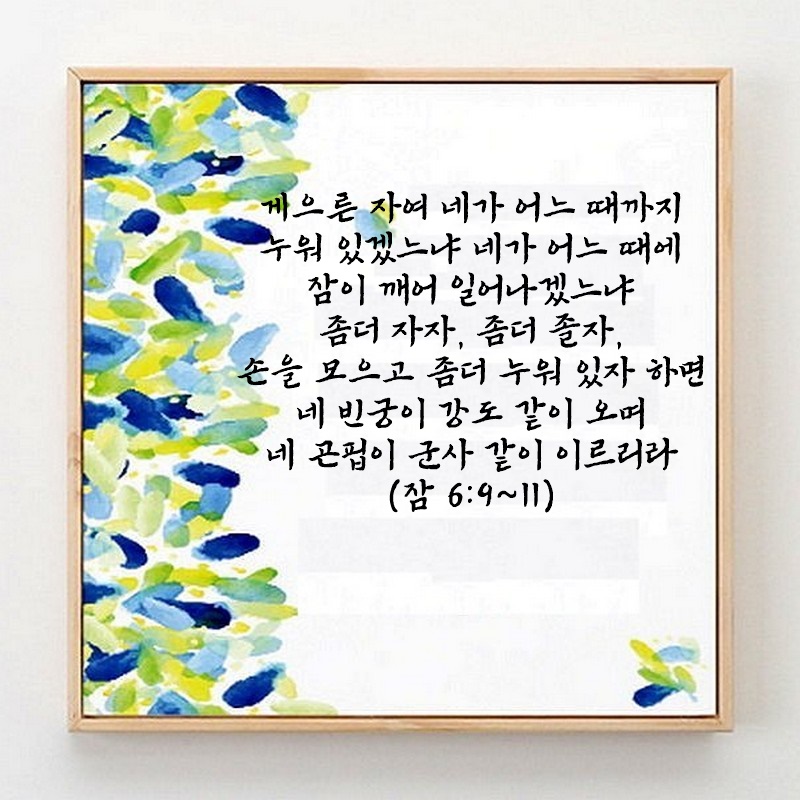 게으른 자여 네가 어느 때까지
누워 있겠느냐 네가 어느 때에
잠이 깨어 일어나겠느냐
좀더 자자, 좀더 졸자,
손을 모으고 좀더 누워 있자 하면
네 빈궁이 강도 같이 오며
네 곤핍이 군사 같이 이르리라
(잠 6:9~11)